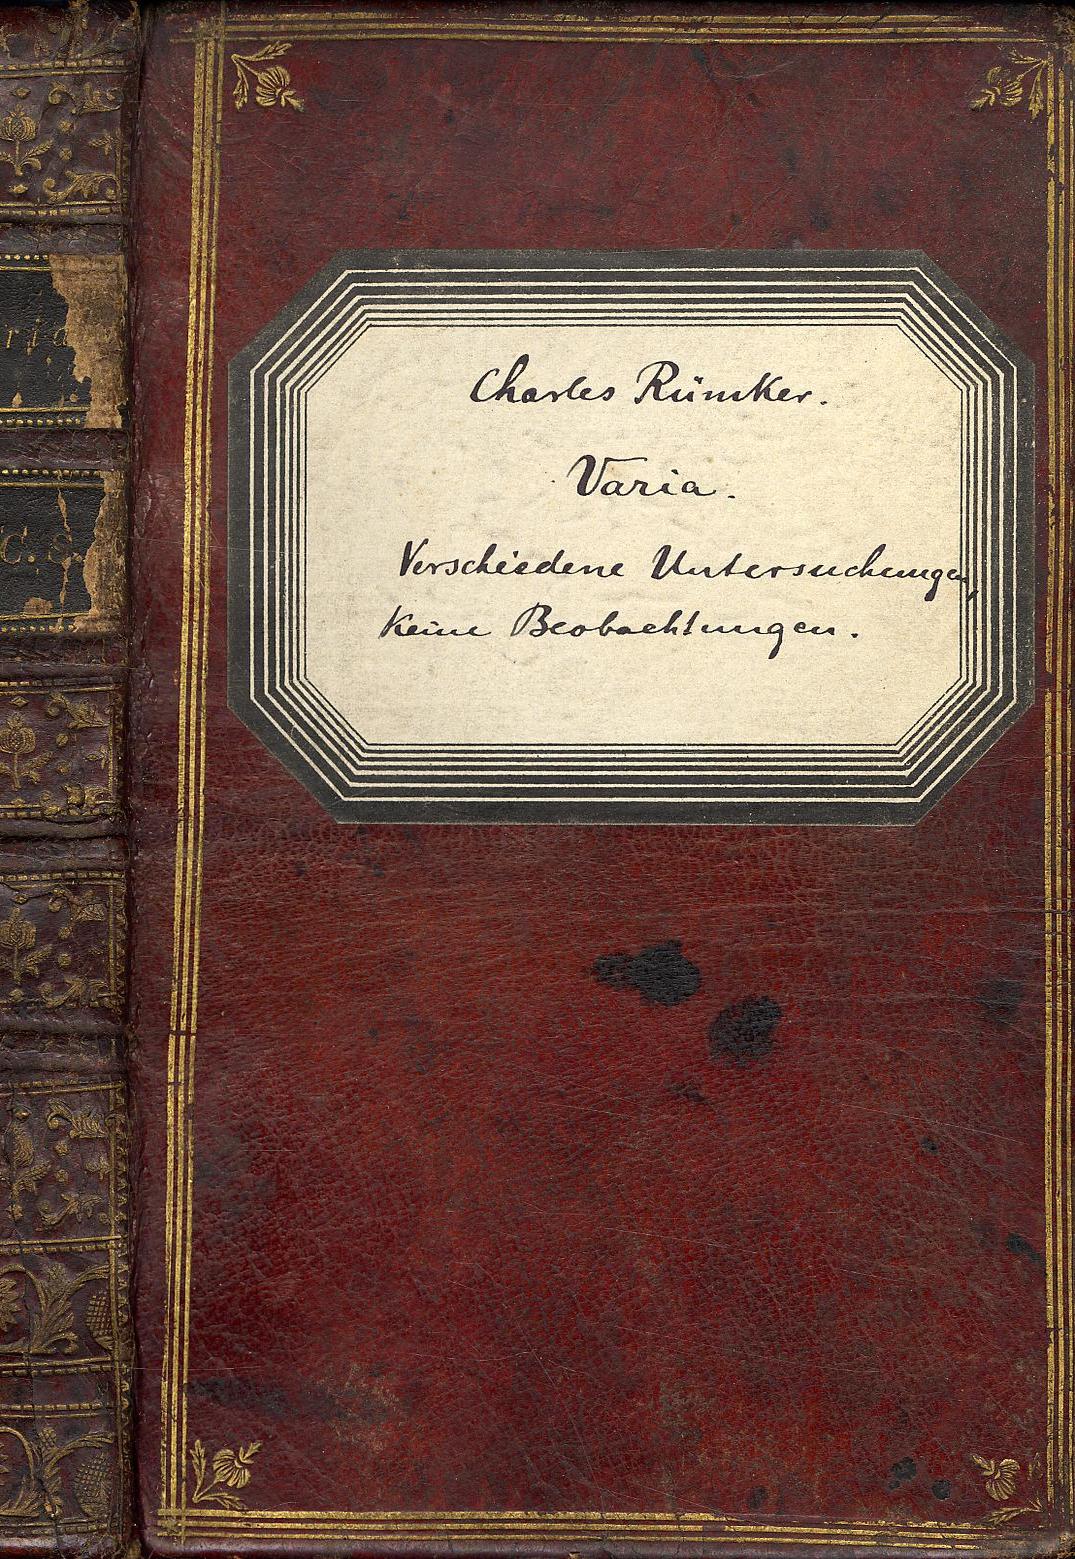 Charles Rümker.
Varia.
Verschiedene Untersuchungen,
Keine Beobachtungen.
C. S.